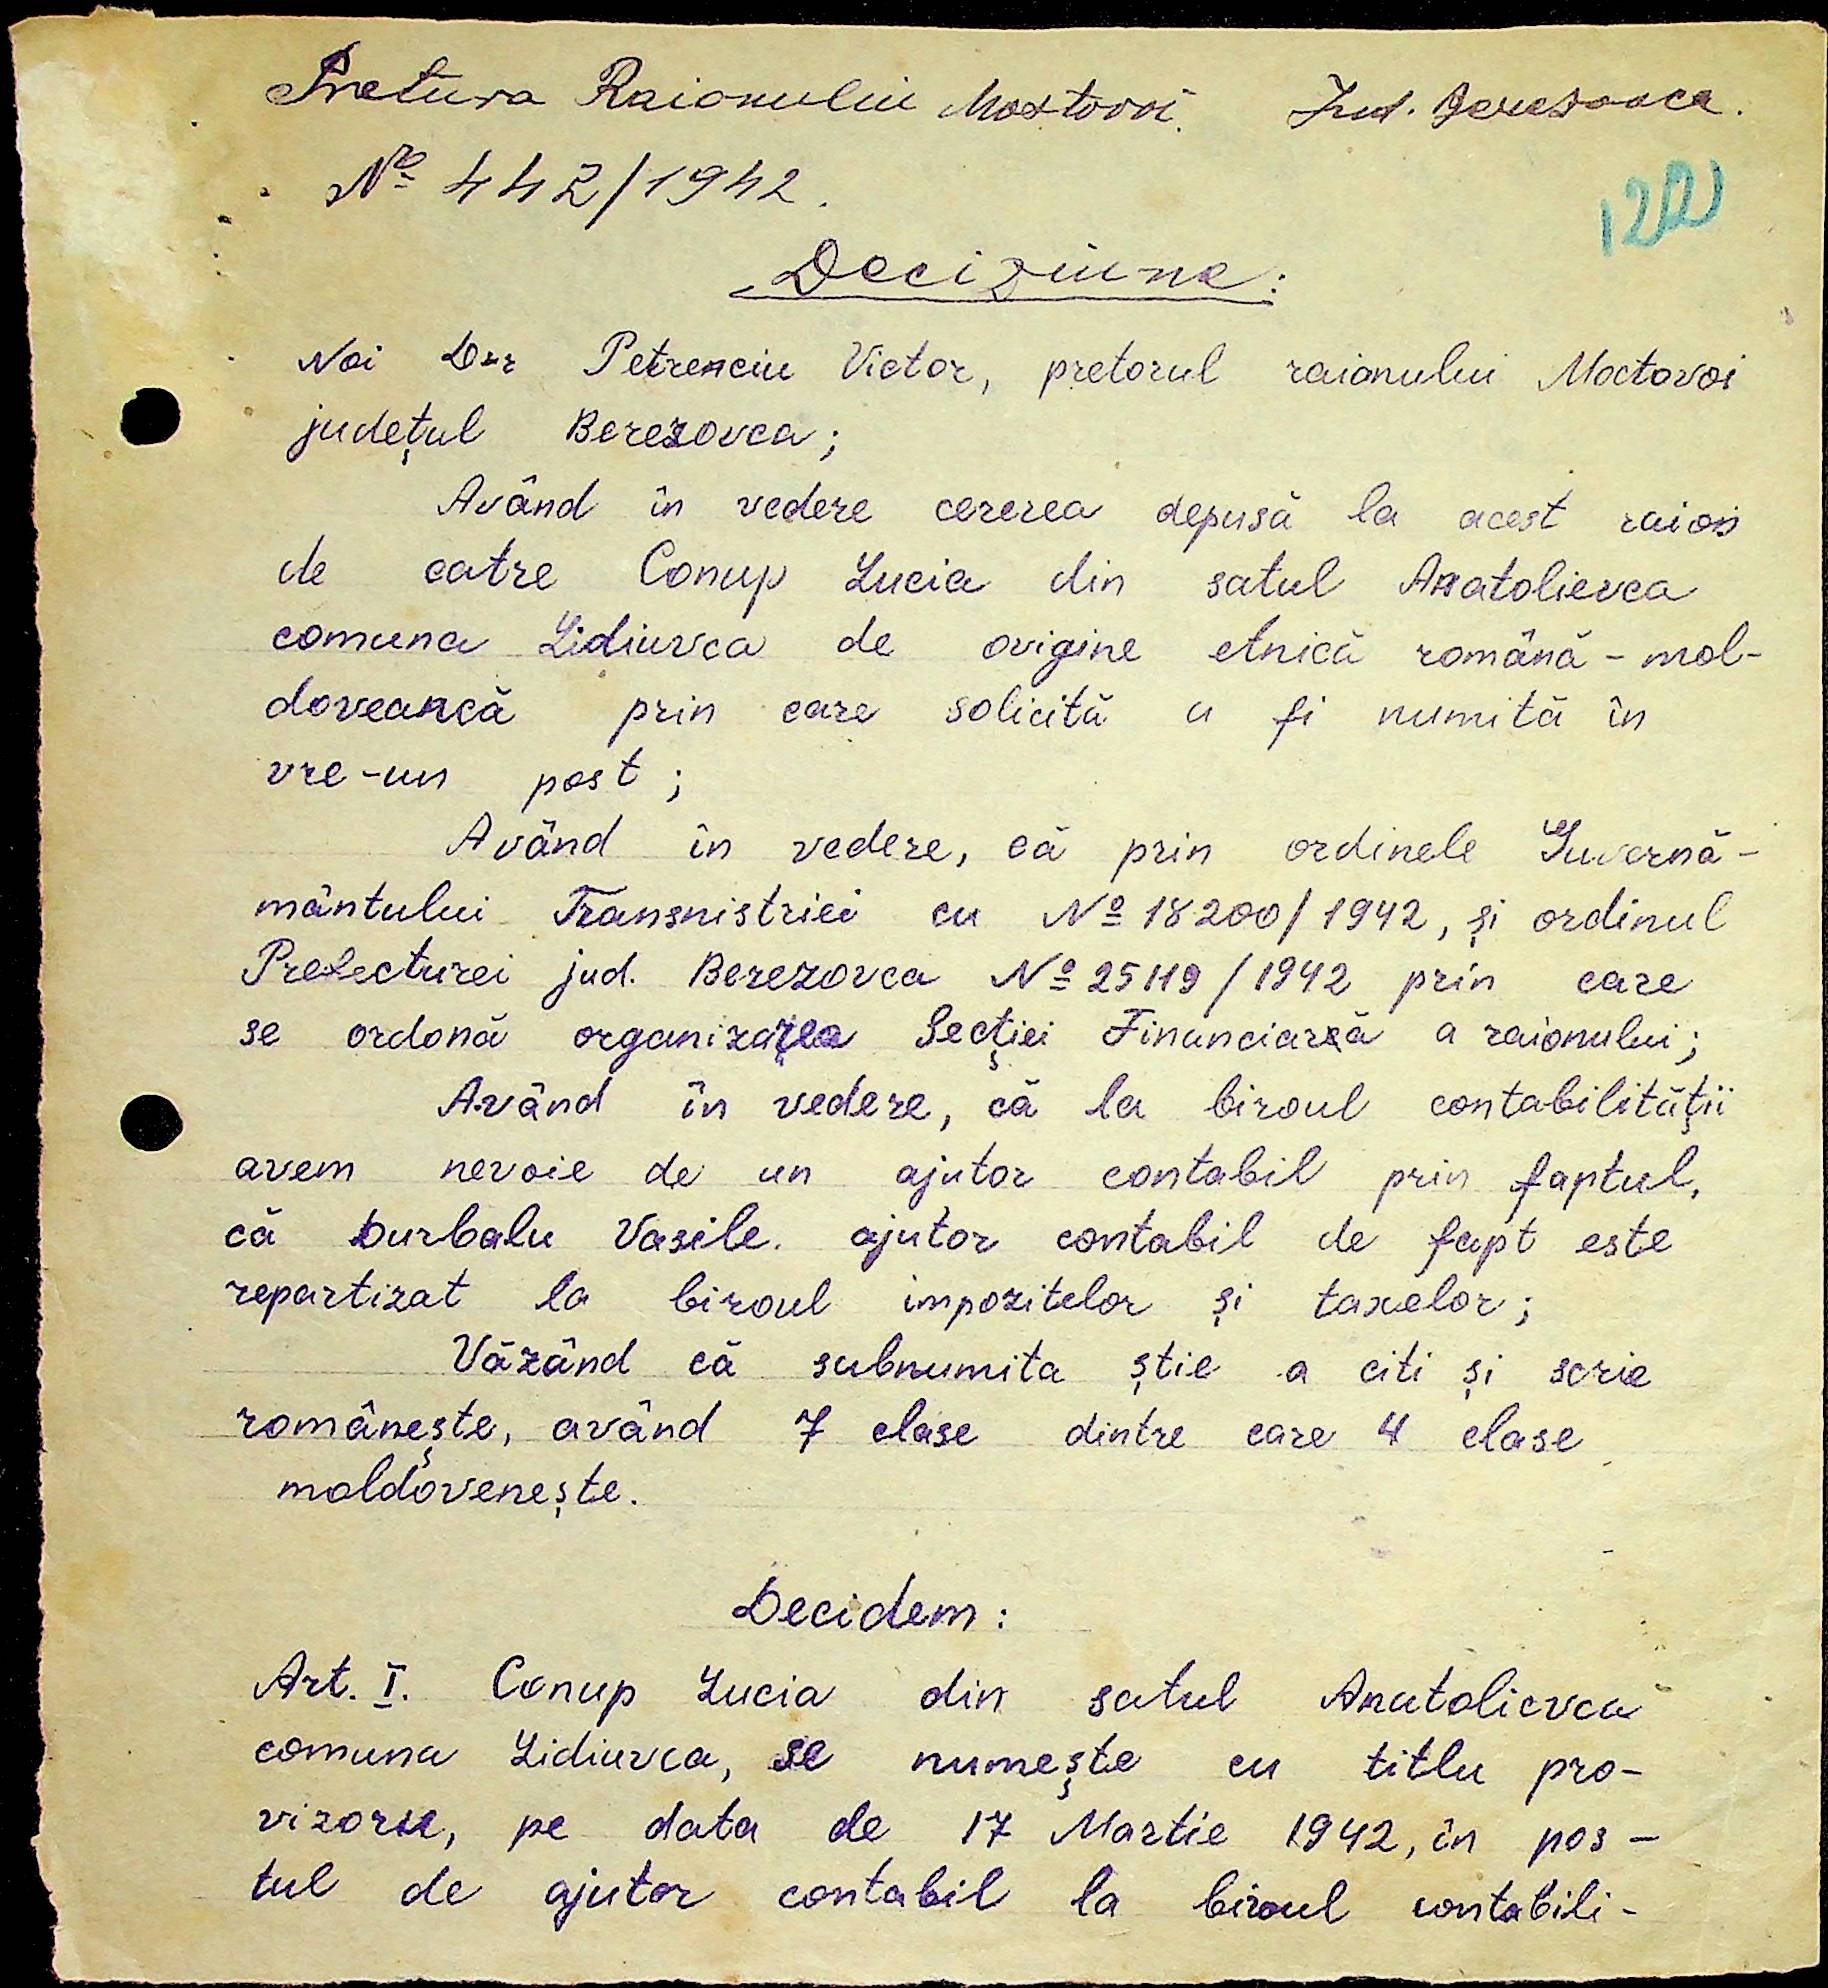 Pretura Raionului Mostovoi. Jud. Beresovca.
№ 442/1942.
122
Deciziune:
Noi D-r Petrenciu Victor, pretorul raionului Moctovoi
județul Berezovca;
Având în vedere cererea depusă la acest raion
de catre Conup Lucia din satul Anatolievca
comuna Lidiuvca de origine etnică română-mol-
doveancă prin care solicită a fi numită în
vre-un post;
Având în vedere, că prin ordinele Guvernă-
mântului Transnistriei cu № 18200/1942, și ordinul
Prefecturei jud. Berezovca № 25119/1942 prin care
se ordonă organizarea Secției Financiară a raionului;
Având în vedere, că la biroul contabilității
avem nevoie de un ajutor contabil prin faptul,
că Durbalu Vasile. ajutor contabil de fapt este
repartizat la biroul impozitelor și taxelor;
Văzând că subnumita știe a citi și scrie
românește, având 7 clase dintre care 4 clase
moldovenește.
Decidem:
Art. I. Conup Lucia din satul Anatolievca
comuna Lidiuvca, se numește cu titlu pro-
vizoriu, pe data de 17 Martie 1942, în pos-
tul de ajutor contabil la biroul contabili-